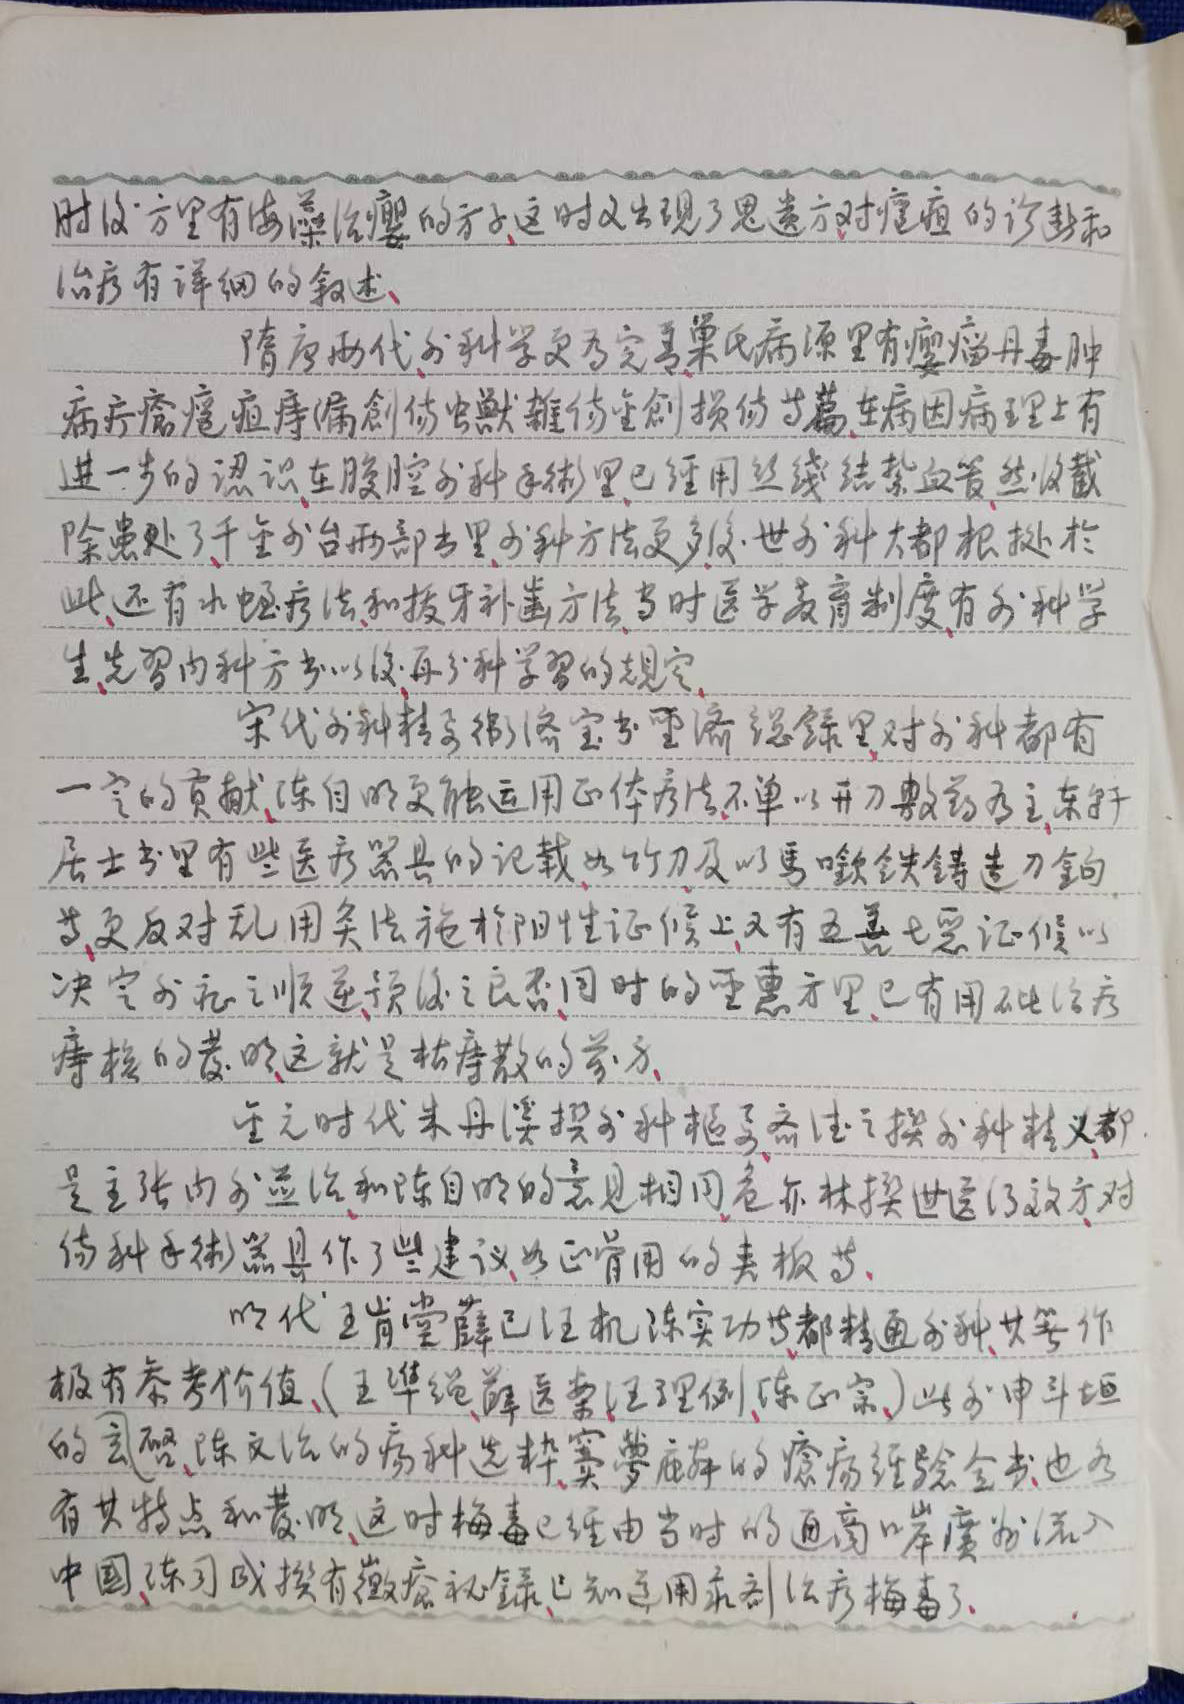 肘後方里有海藻治癭的方子、这时又出现了鬼遗方、对癰疽的诊断和
治疗有详细的叙述、
隋唐两代、外科学更为完善、巢氏病源里有癭瘤丹毒肿
病疔瘡癰疽痔漏創伤虫獸雜伤金創损伤等篇、在病因病理上有
进一步的認识、在腹腔外科手術里、已經用丝綫結紮血管、然後截
除患处了、千金外台两部书里、外科方法更多、後世外科大都根据於
此、还有水蛭疗法、和拔牙补齒方法、当时医学教育制度、有外科学
生、先習内科方书以後、再分科学習的規定、
宋代外科精要衛济宝书聖济総録里、对外科都有
一定的贡献、陈自明更能运用正体疗法、不单以开刀敷药为主、东轩
居士书里有些医疗器具的记载、如竹刀、及以馬口啣鉄鋳造刀鉤
等、更反对乱用灸法施於阳性证候上、又有五善七惡证候以
决定外症之顺逆、预後之良否、同时的聖惠方里、已有用砒治疗
痔核的發明、这就是枯痔散的前方、
金元时代朱丹溪撰外科樞要、齐德之撰外科精义、都
是主张内外並治、和陈自明的意見相同、危亦林撰世医得效方、对
伤科手術器具作了些建议、如正骨用的夹板等、
明代王肯堂薛已汪机陈实功等、都精通外科、其著作
极有参考价值、(王準绳、薛医案、汪理例、陈正宗、)此外申斗垣
的玄啓、陈文治的瘍科选粹、窦夢麟的瘡瘍經騐全书、也各
有其特点和發明、这时梅毒已經由当时的通商口岸廣州流入
中國、陈司成撰有黴瘡祕録、已知道用汞剂治疗梅毒了、